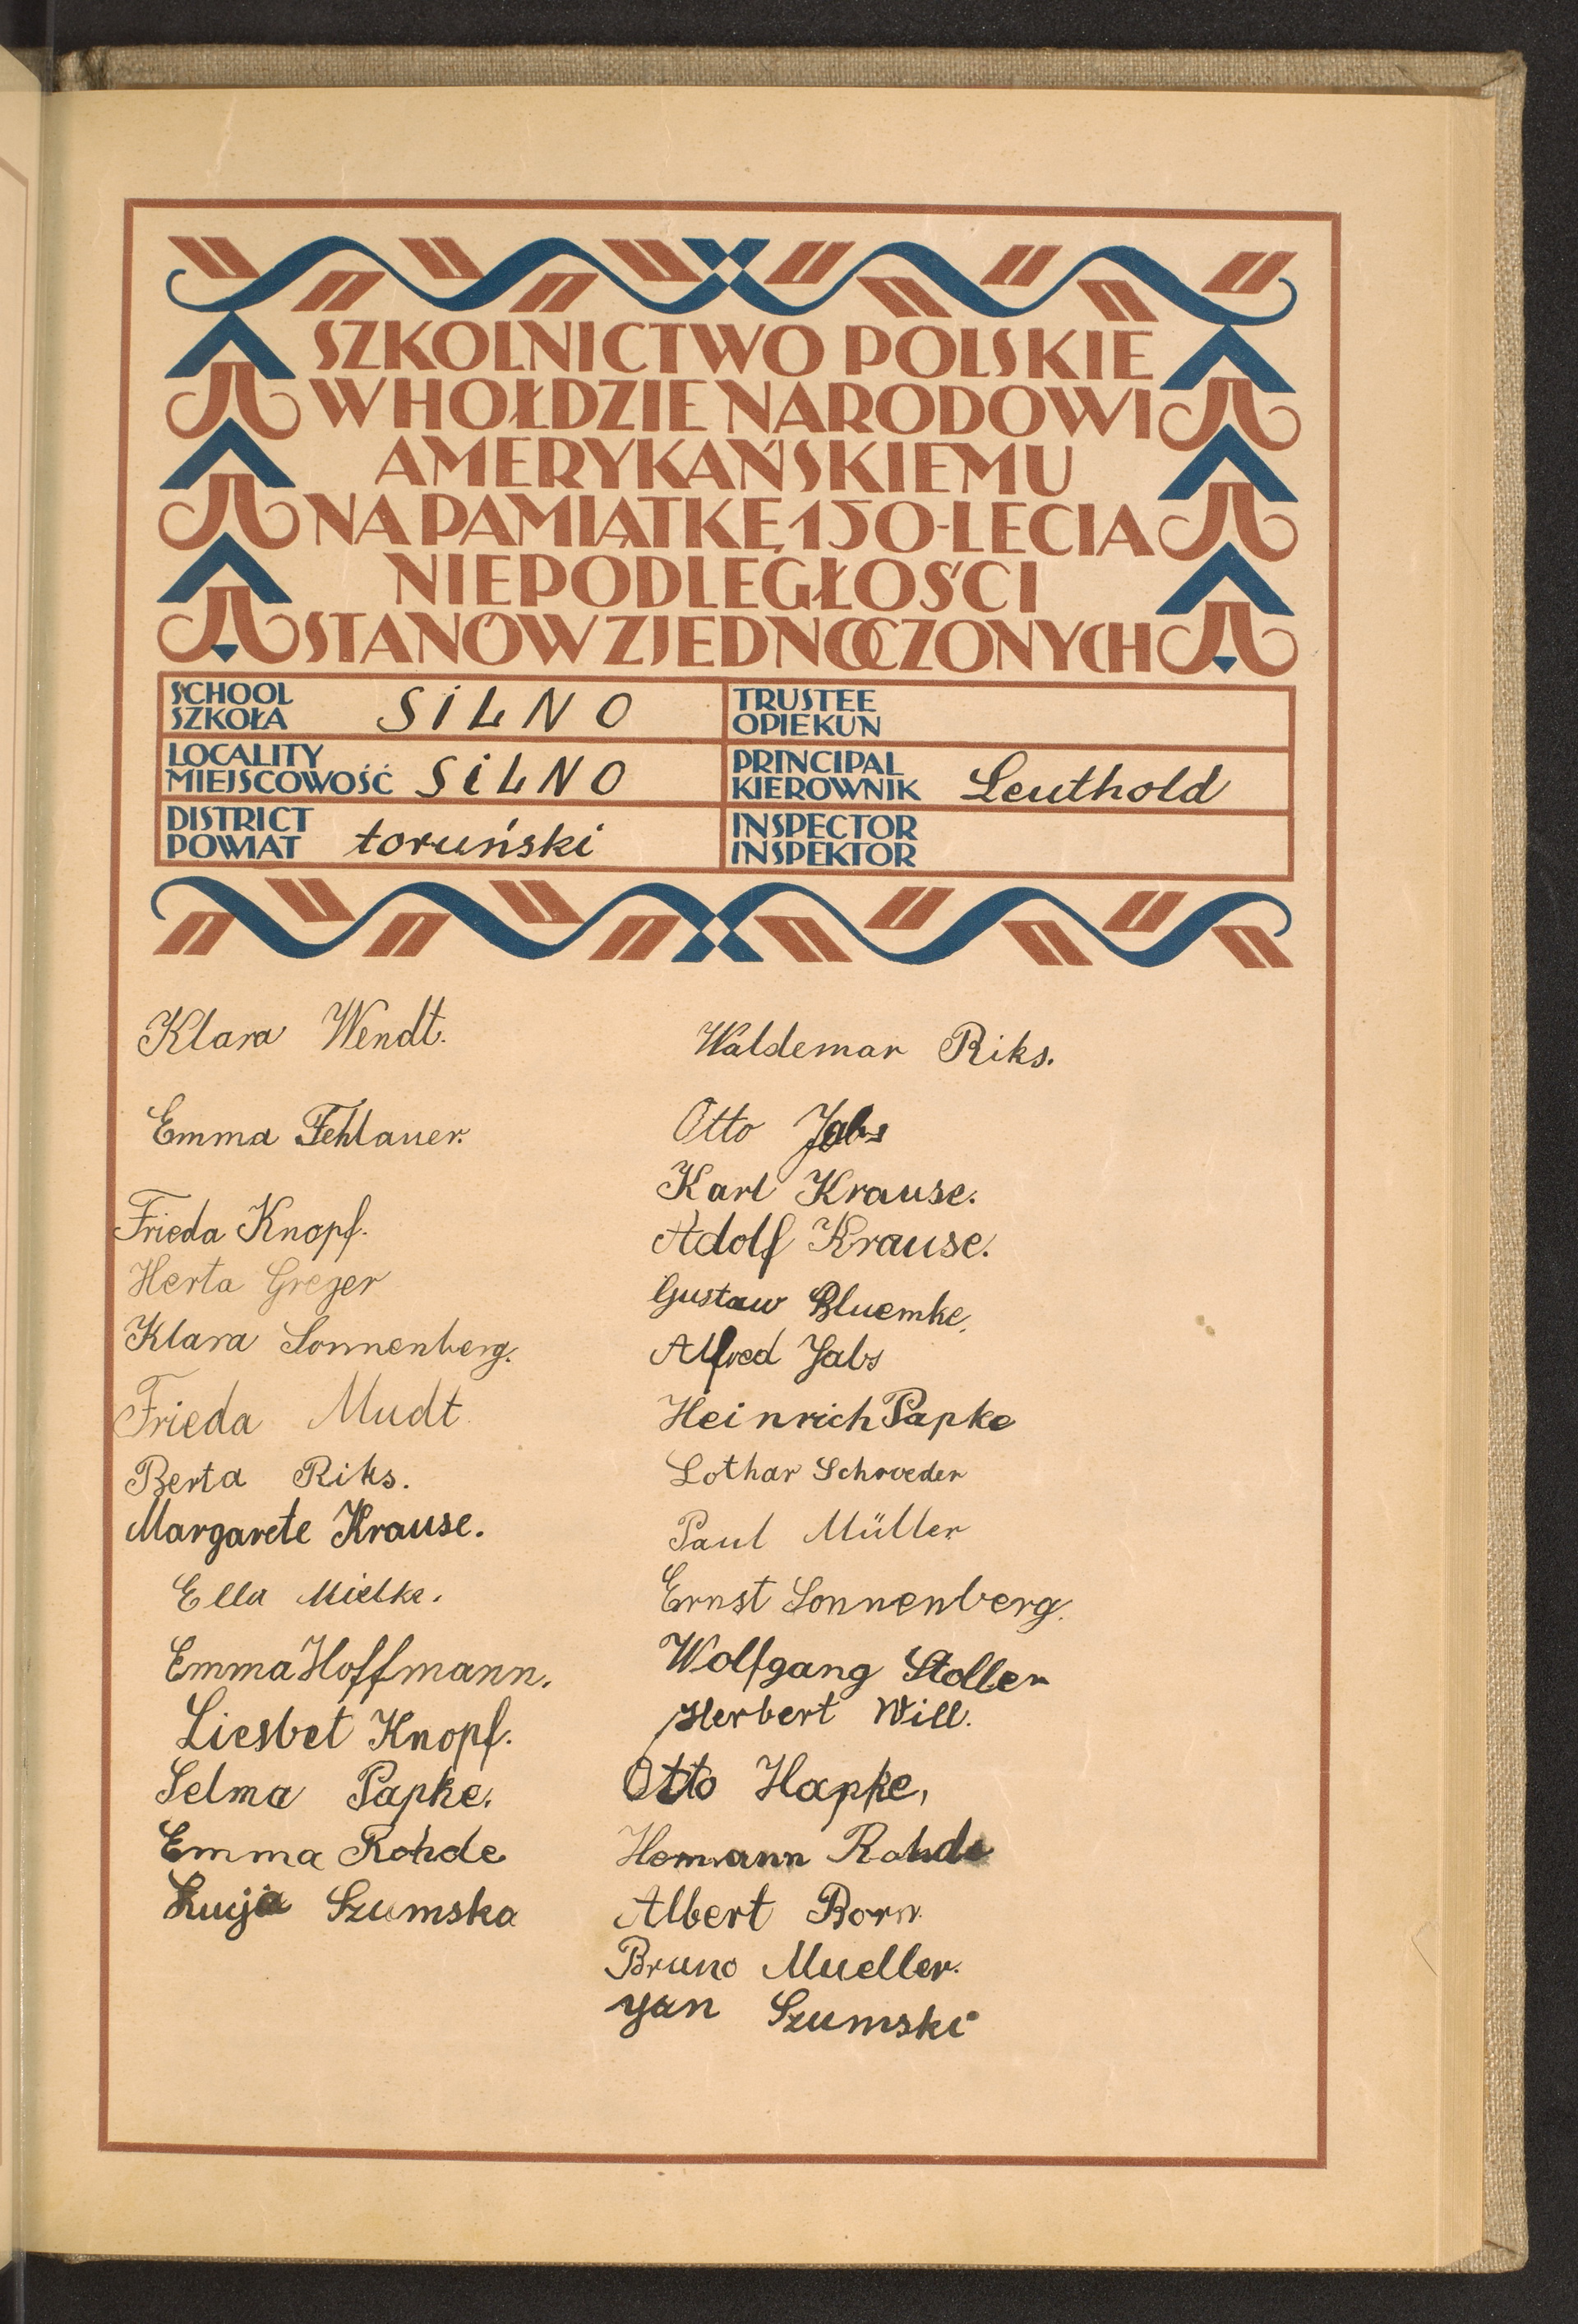 SZKOLNICTWO POLSKIE
W HOŁDZIE NARODOWI
AMERYKAŃSKIEMU
NA PAMIĄTKĘ 150-LECIA
NIEPODLEGŁOŚCI
STANÓW ZJEDNOCZONYCH
SCHOOL
SZKOŁA SILNO
LOCALITY
MIEJSCOWOŚĆ SILNO
DISTRICT
POWIAT toruński
TRUSTEE
OPIEKUN
PRINCIPAL
KIEROWNIK Leuthold
INSPECTOR
INSPEKTOR
Klara Wendt.
Emma Fehlauer.
Frieda Knopf.
Herta Greger
Klara Sonnenberg.
Frieda Mudt.
Berta Riks.
Margarete Krause.
Ella Mielke.
Emma Hoffmann.
Liesbet Knopf.
Selma Papke.
Emma Rohde
Lucja Szumska
Waldemar Riks.
Otto Jabs
Karl Krause.
Adolf Krause.
Gustaw Bluemke.
Alfred Jabs
Heinrich Papke
Lothar Schroeder
Paul Müller
Ernst Sonnenberg.
Wolfgang Stoller
Herbert Will.
Otto Hapke,
Hermann Rohde
Albert Born.
Bruno Mueller.
Yan Szumski